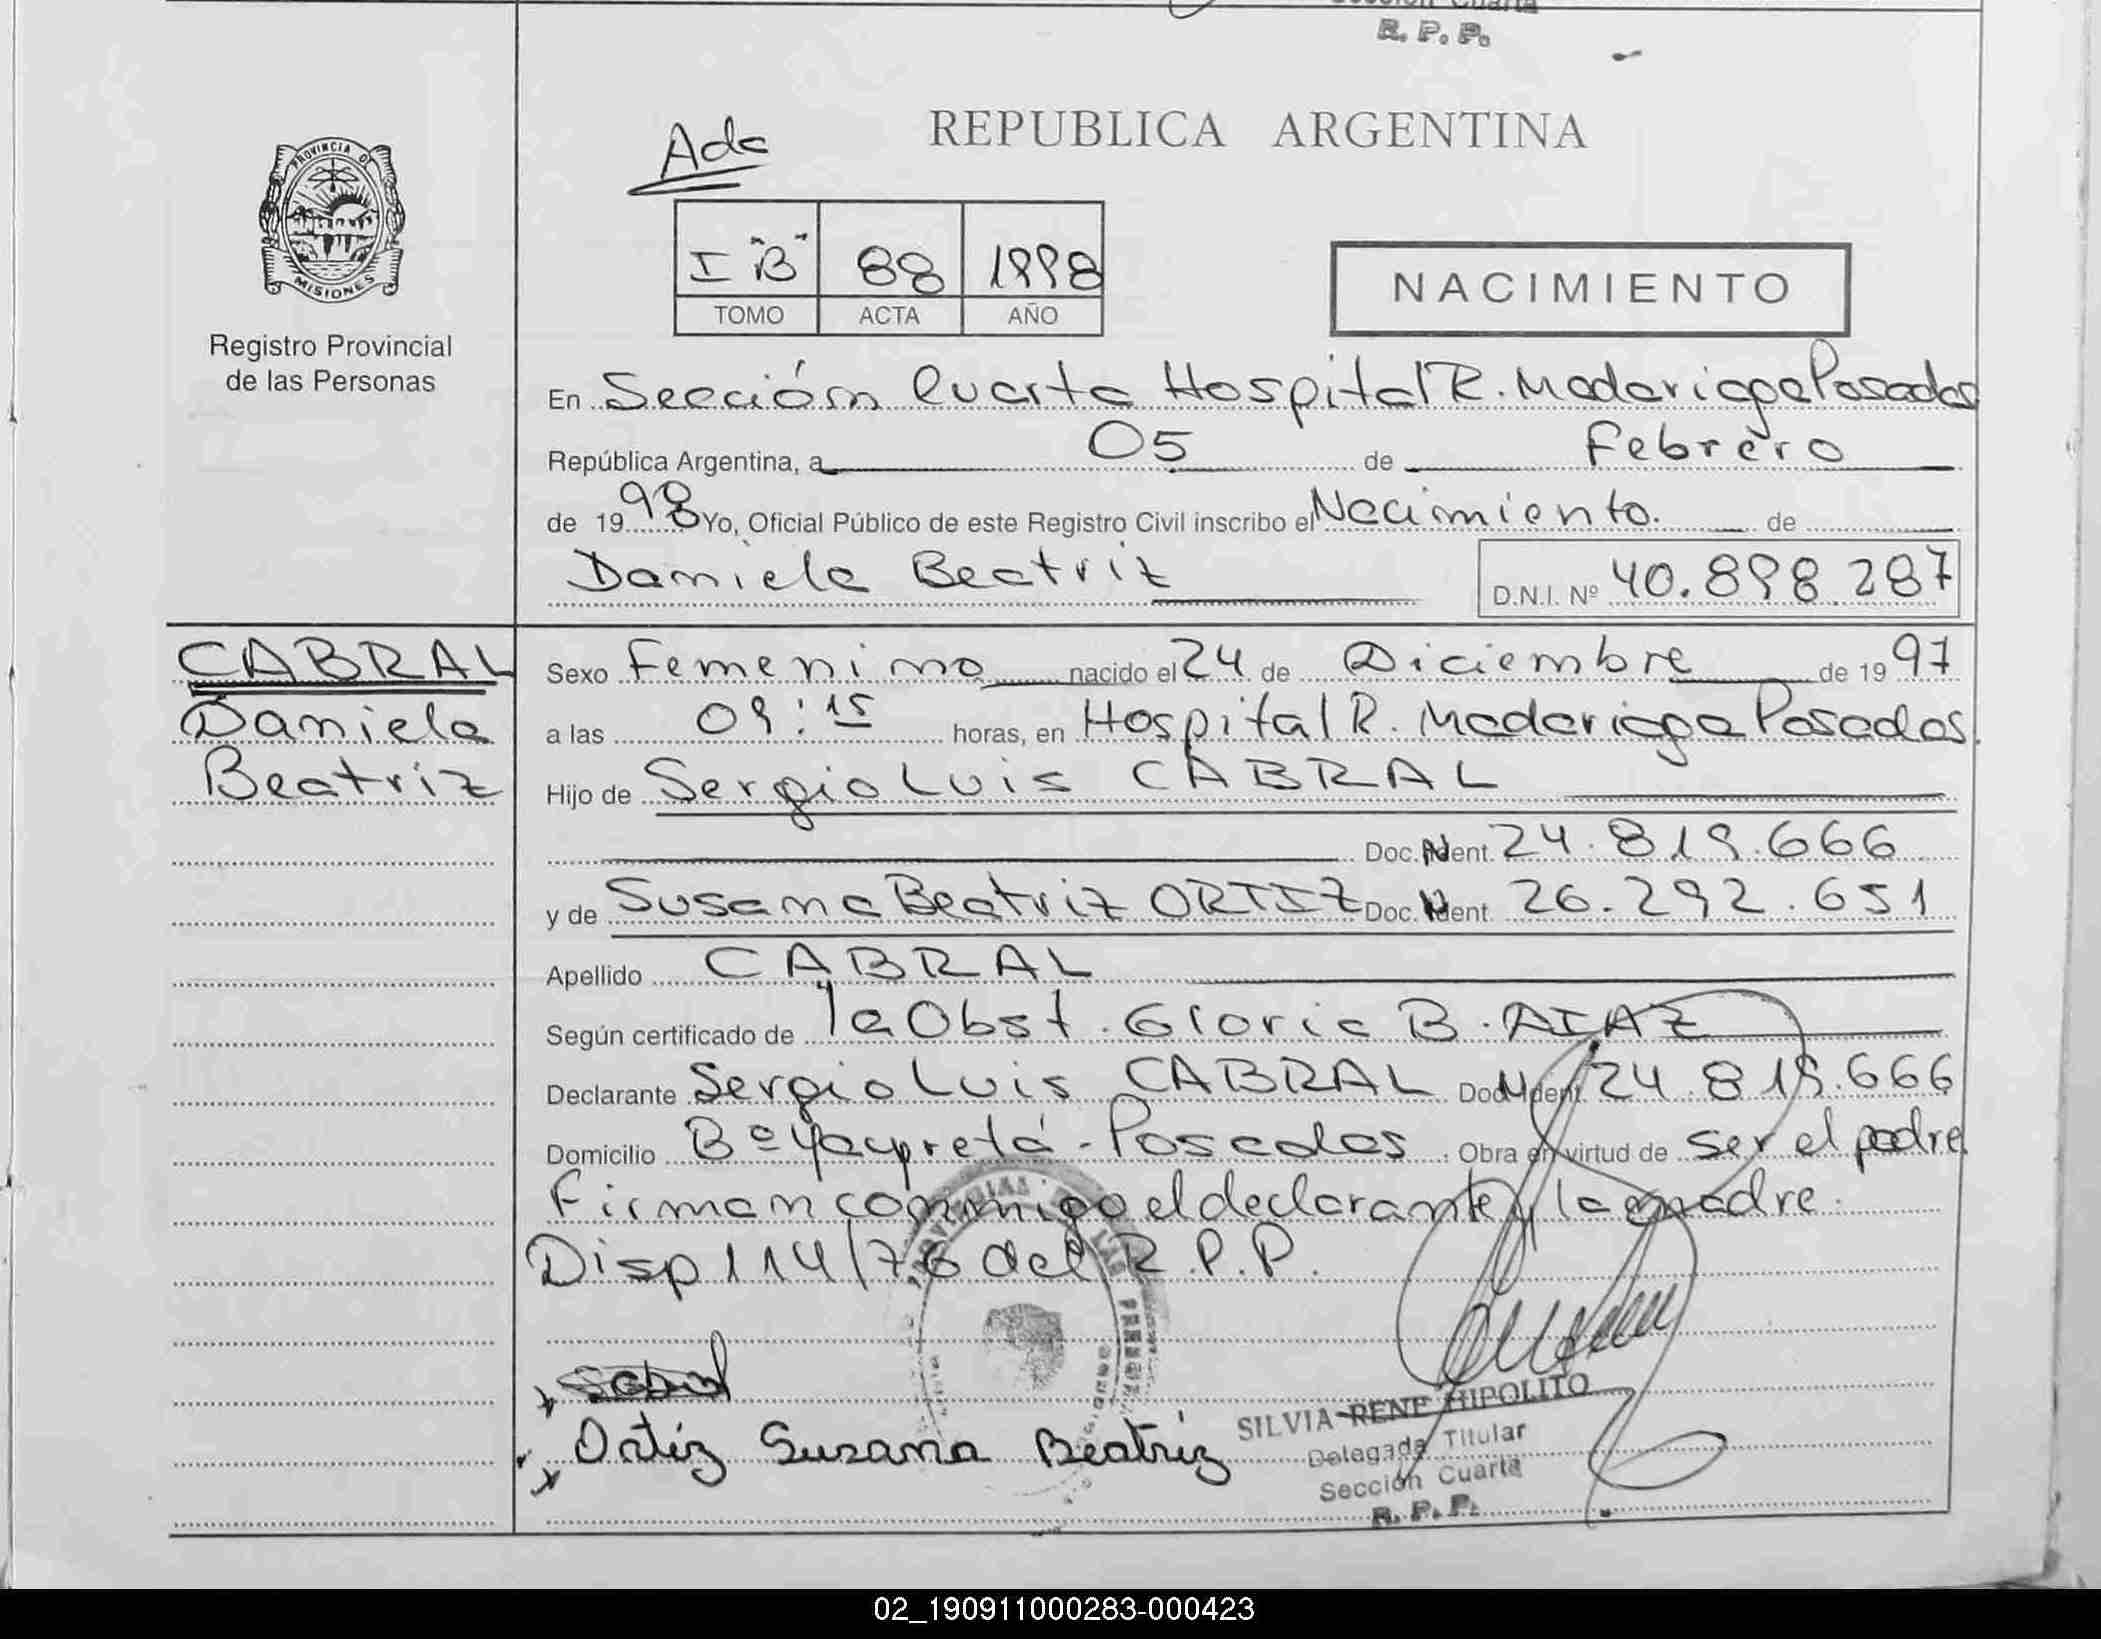 Sección Cuarta
R. P. P.
PROVINCIA DE
MISIONES
Registro Provincial
de las Personas
REPUBLICA ARGENTINA
I "B" 88 1998
TOMO ACTA AÑO
NACIMIENTO
En Sección Cuarta Hospital R. Madariaga Posadas
República Argentina, a 05 de Febrero
de 1998 Yo, Oficial Público de este Registro Civil inscribo el Nacimiento. de
Daniela Beatriz D.N.I. Nº 40.898.287
CABRAL
Daniela
Beatriz
Sexo Femenino nacido el 24 de Diciembre de 1997
a las 09:15 horas, en Hospital R. Madariaga Posadas.
Hijo de Sergio Luis CABRAL
Doc. Ident. 24.819.666
y de Susana Beatriz ORTIZ Doc. Ident. 26.292.651
Apellido CABRAL
Según certificado de la Obst. Gloria B. DIAZ
Declarante Sergio Luis CABRAL Doc. Ident. 24.819.666
Domicilio Bº Yacyretá - Posadas. Obra en virtud de ser el padre.
Firman conmigo el declarante y la madre.
Disp 114/76 del R.P.P.
Ortiz Susana Beatriz
SILVIA RENE HIPOLITO
Delegada Titular
Sección Cuarta
R. P. P.
02_190911000283-000423